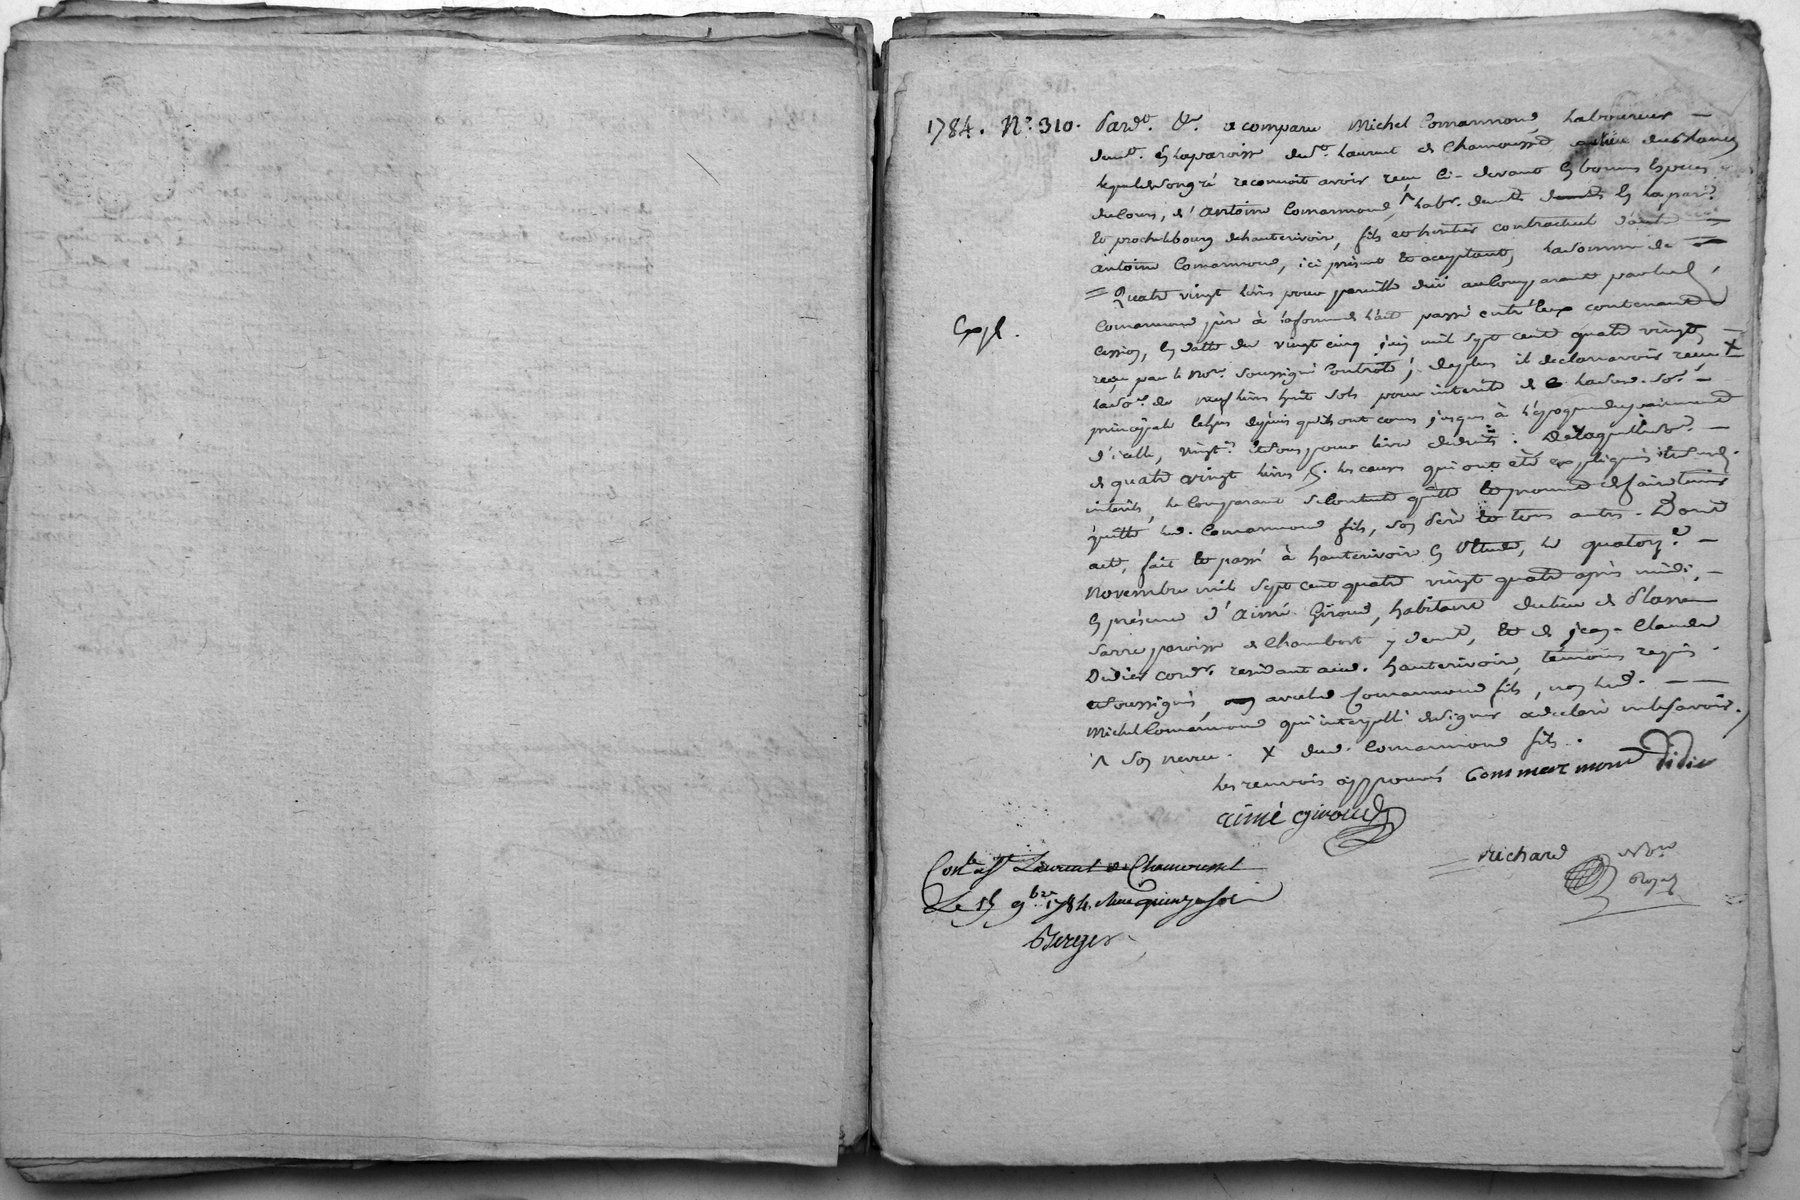 1784. N.° 310. Pard.t &a. a comparu Michel Comarmond, laboureur
dem.t en la paroisse de St. Laurent de Chamousset au lieu du
lequel de son gré reconnoit avoir reçu ci-devant en bonnes Especes
du Cours, d'Antoine Comarmond, ^ hab.t en la par.sse
et proche le bourg de hauterivoire, fils et heritier contractuel d'autre
antoine Comarmond, ici présent et aceptant, la somme de
Quatre vingt livres pour pareille düe au Comparant par led.
Comarmond père à la forme de l'acte passé entr'Eux contenant
Cession, en datte du vingt cinq juin mil sept cent quatre vingt
Expl.
reçu par le No.re soussigné Controllé; de plus il declare avoir reçu X
la so.e de neuf livres huit sols pour interets de la susd. so.e
principale Echus depuis qu'ils ont cours jusques à l'epoque du paiement
d'icelle, vingt.e et sous pour livre deduits: De laquelle so.e
de quatre vingt livres p.r les causes qui ont été expliquées et desd.
interets, le Comparant se Contente quitte et promet de faire tenir
quitte led. Comarmond fils, son Père et tous autres. Dont
acte, fait et passé à hauterivoire en Etude, le quatorze
Novembre mil sept cent quatre vingt quatre après midi,
en présence d'Aimé Giroud, habitant du lieu de
paroisse de Chambost y dem.t, et de jean-Claude
Didier cord.r résidant aud. hauterivoire, témoins requis
et soussignés, avec led. Comarmond fils, non led.
Michel Comarmond qui interpellé de signer a declaré ne le savoir.
^ son neveu. X dud. Comarmond fils.
les renvois approuvés Commarmond Didier
aimé giroud
Richard No.re
Royal
Con.lé à St Laurent de Chamousset
Le 15 9bre 1784. Reçu quinze sols
Berger